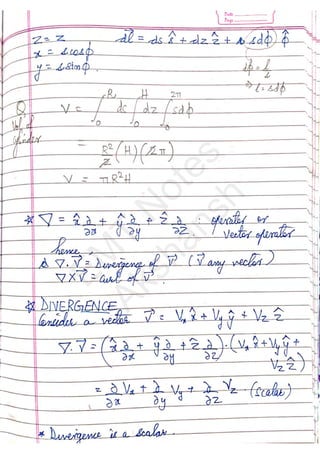 Date
Page
z = z , d\vec{l} = ds ŝ + dz ẑ + s dϕ ϕ̂
x = s cosϕ
y = s sinϕ
dϕ = l/s
⇒ l = s dϕ
Q vol. of cylinder
V = ∫₀^R ds ∫₀^H dz ∫₀^{2π} s dϕ
= R²/2 (H) (2π)
V = πR²H
* ∇ = x̂ ∂/∂x + ŷ ∂/∂y + ẑ ∂/∂z : operator or vector operator
hence,
∇·\vec{V} = Divergence of \vec{V} (\vec{V} any vector)
∇×\vec{V} = curl of \vec{V}.
* DIVERGENCE
Consider a vector \vec{V} = Vₓ x̂ + V_y ŷ + V_z ẑ
∇·\vec{V} = (x̂ ∂/∂x + ŷ ∂/∂y + ẑ ∂/∂z)·(Vₓ x̂ + V_y ŷ + V_z ẑ)
= ∂/∂x Vₓ + ∂/∂y V_y + ∂/∂z V_z . (scalar)
* Divergence is a scalar.
Notes